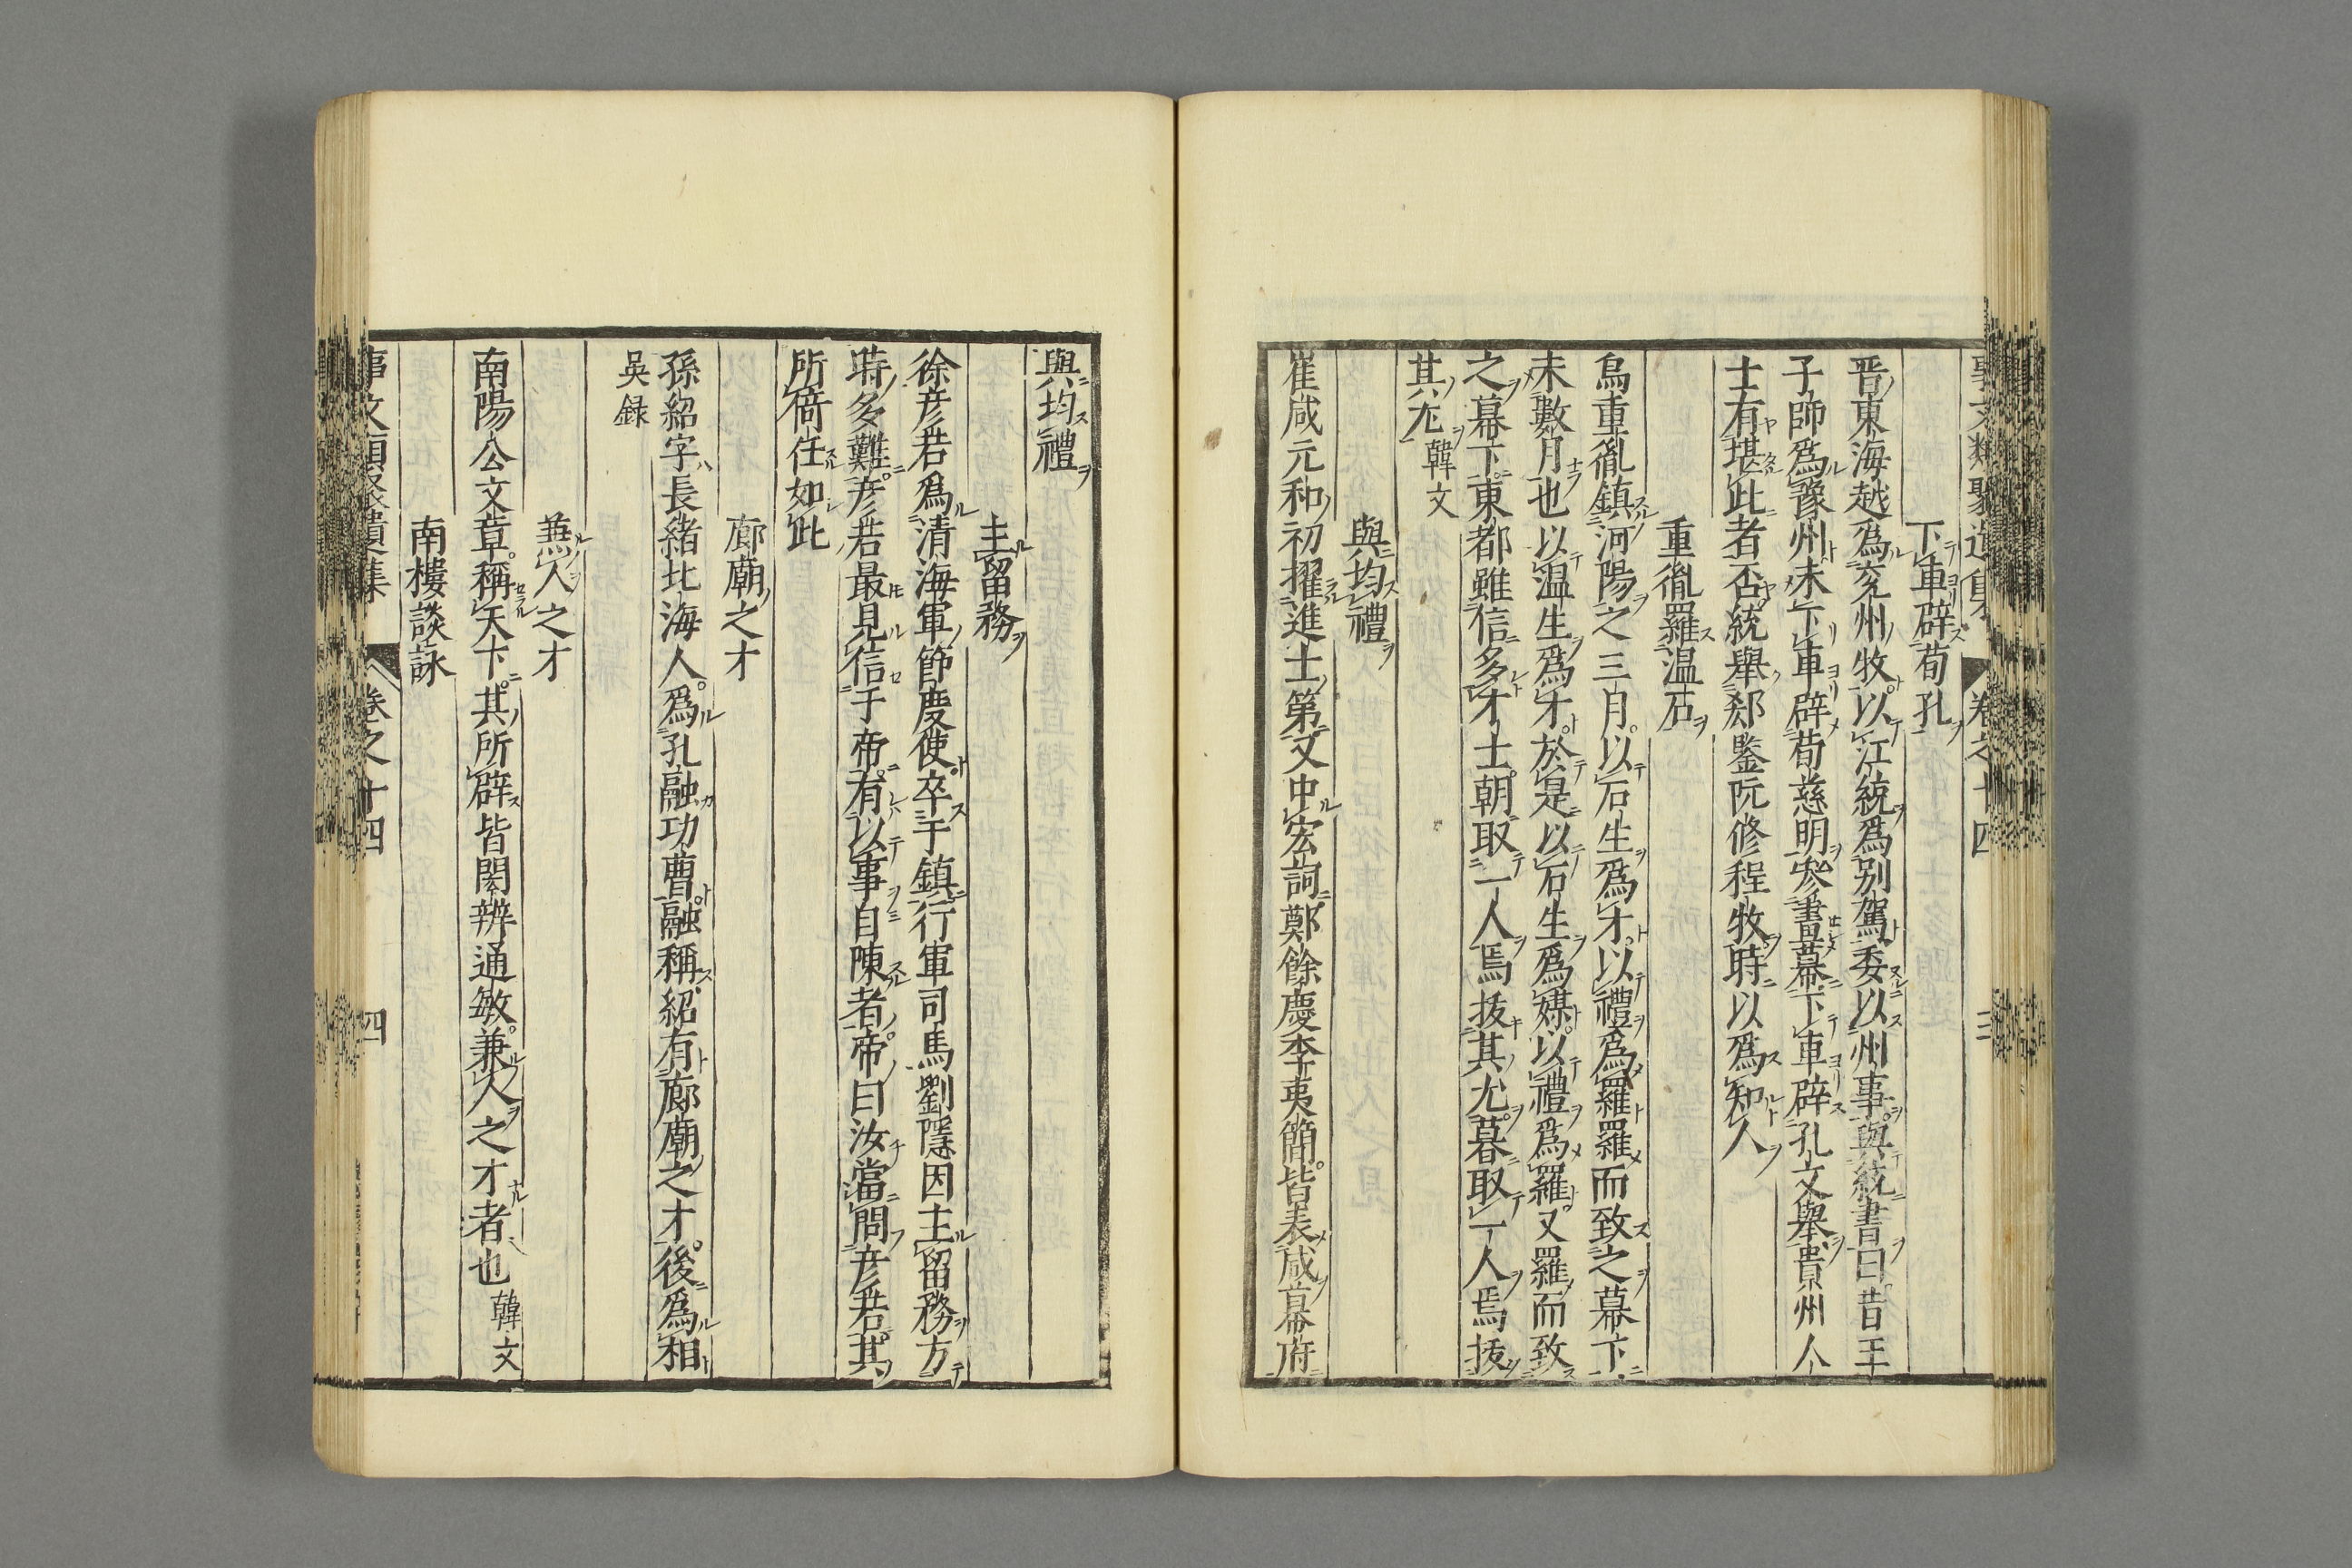 事文類聚遺集 卷之十四 三
下車辟荀孔
晋東海越爲兗州牧以江統爲别駕委以州事與統書曰昔王
子師爲豫州未下車辟荀慈明參書幕下車辟孔文舉貴州人
士有堪此者否統舉郄鑒阮修程牧時以爲知人
重胤羅温石
烏重胤鎮河陽之三月以石生爲才以禮爲羅羅而致之幕下
未數月也以温生爲才於是以石生爲媒以禮爲羅又羅而致
之幕下東都雖信多才士朝取一人焉拔其尤暮取一人焉拔
其尤 韓文
與均禮
崔咸元和初擢進士第又中宏詞鄭餘慶李夷簡皆表咸幕府
與均禮
主留務
徐彦若爲清海軍節慶使卒于鎮行軍司馬劉隱因主留務方
時多難彦若最見信于帝有以事自陳者帝曰汝當問彦若其
所倚任如此
廊廟之才
孫紹字長緒北海人爲孔融功曹融稱紹有廊廟之才後爲相
吳録
兼人之才
南陽公文章稱天下其所辟皆閎辨通敏兼人之才者也 韓文
南樓談詠
事文類聚遺集 卷之十四 四